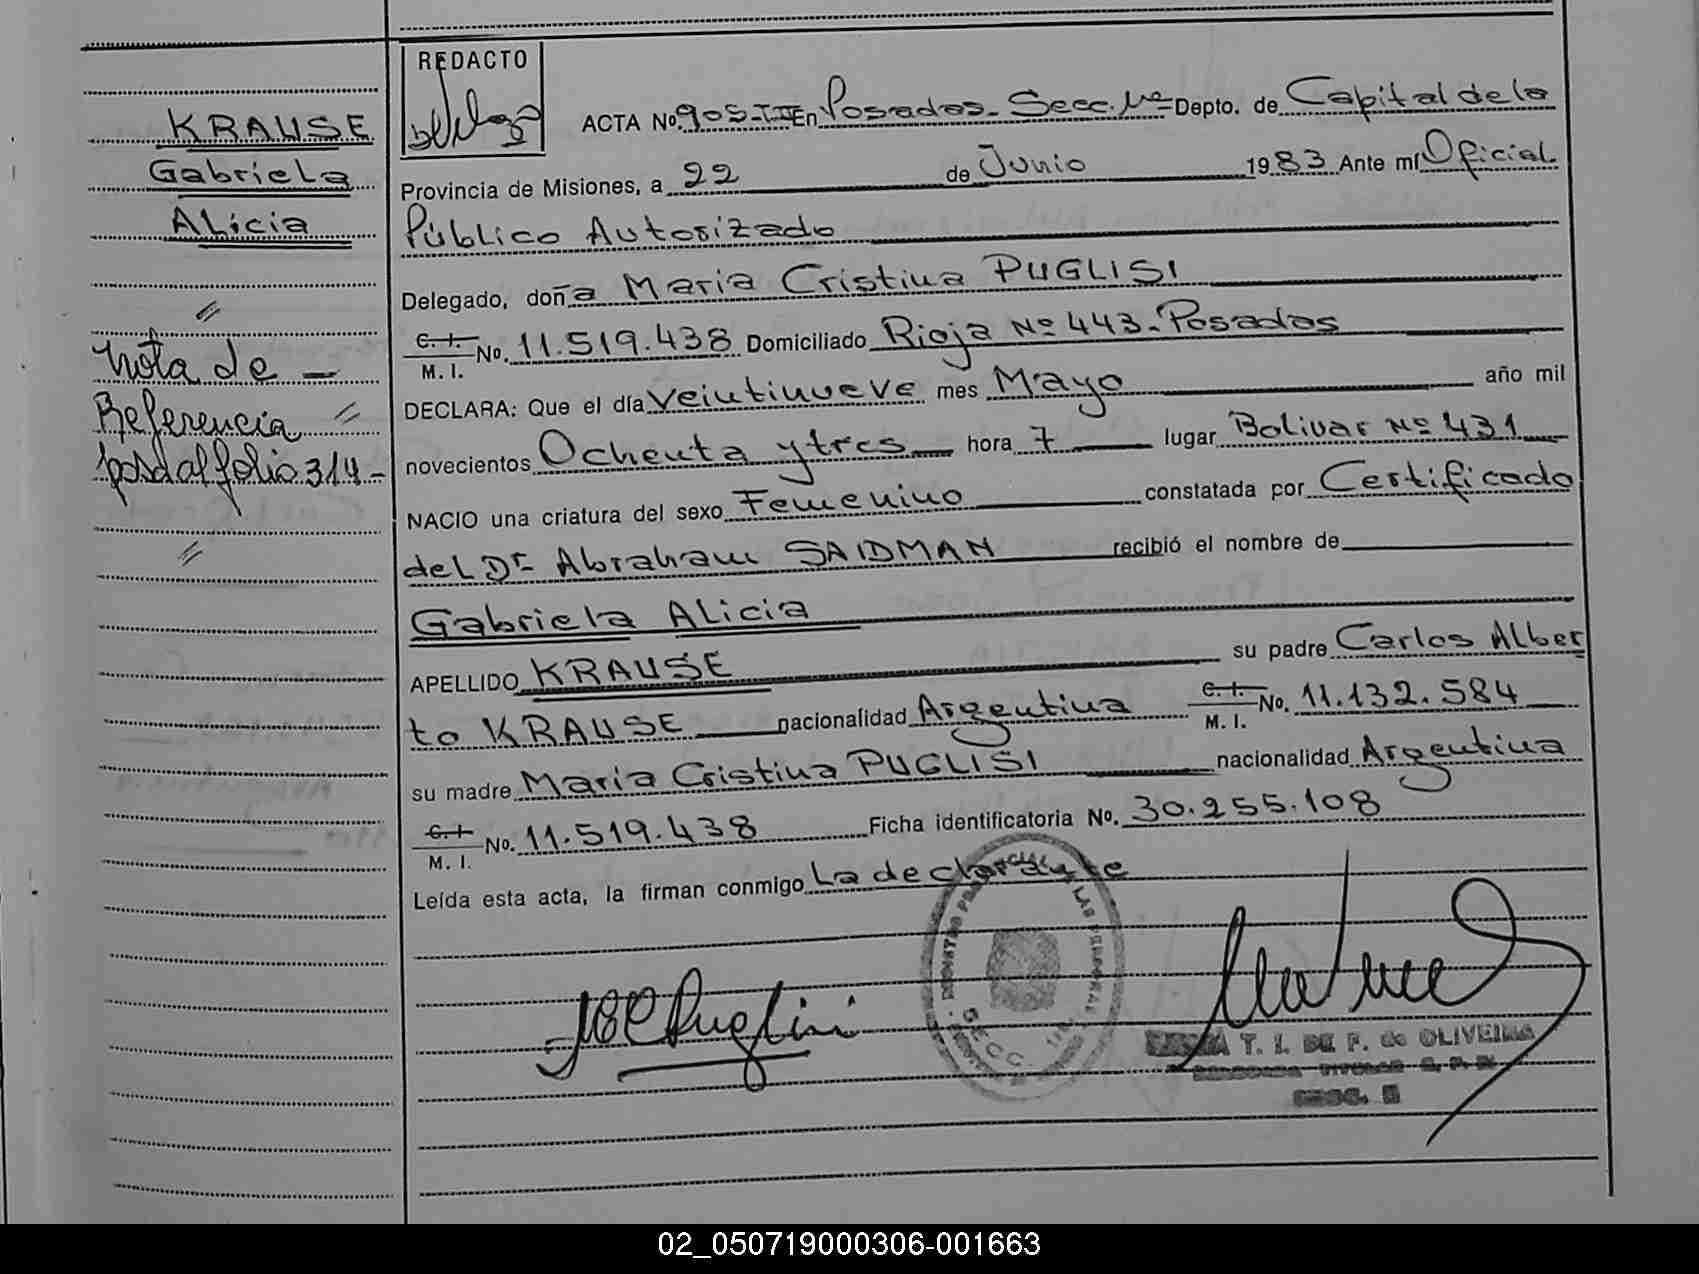 REDACTO
KRAUSE
Gabriela
Alicia
Nota de
Referencia
folio 314-
ACTA No. 905-III En Posadas- Secc. 1ra Depto. de Capital de la
Provincia de Misiones, a 22 de Junio 1983 Ante mí Oficial
Público Autorizado
Delegado, doña Maria Cristina PUGLISI
C. I.
M. I. No. 11.519.438 Domiciliado Rioja Nº 443- Posadas
DECLARA: Que el día veintinueve mes Mayo año mil
novecientos Ochenta y tres hora 7 lugar Bolivar Nº 431
NACIO una criatura del sexo Femenino constatada por Certificado
del Dr Abraham SAIDMAN recibió el nombre de
Gabriela Alicia
APELLIDO KRAUSE su padre Carlos Alber
to KRAUSE nacionalidad Argentina C. I.
M. I. No. 11.132.584
su madre Maria Cristina PUGLISI nacionalidad Argentina
C. I.
M. I. No. 11.519.438 Ficha identificatoria No. 30.255.108
Leída esta acta, la firman conmigo La declarante
LAS PERSONAS
SECC.
T. I. DE F. de OLIVEIRA
02_050719000306-001663